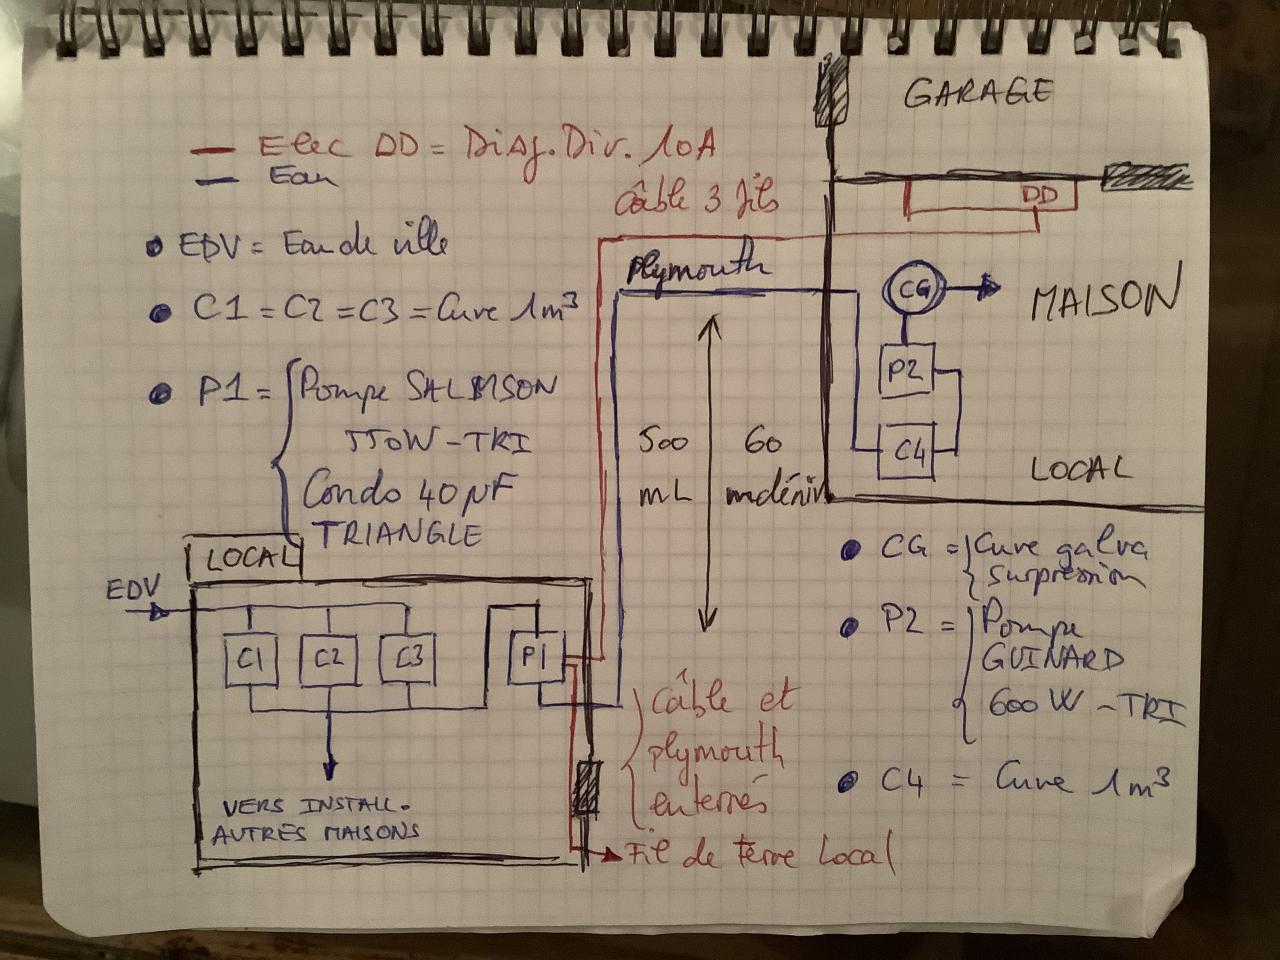 GARAGE
Elec DD = Disj. Div. 10A
Eau
câble 3 fils
DD
EDV = Eau de ville
plymouth
CG
MAISON
C1 = C2 = C3 = Cuve 1m³
P1 = Pompe SALMSON
550W - TRI
Condo 40µF
TRIANGLE
P2
C4
500
mL
60
mdéniv
LOCAL
LOCAL
EDV
C1
C2
C3
P1
CG = Cuve galva
surpression
P2 = Pompe
GUINARD
600W - TRI
C4 = Cuve 1m³
câble et
plymouth
enterrés
VERS INSTALL.
AUTRES MAISONS
Fil de terre local